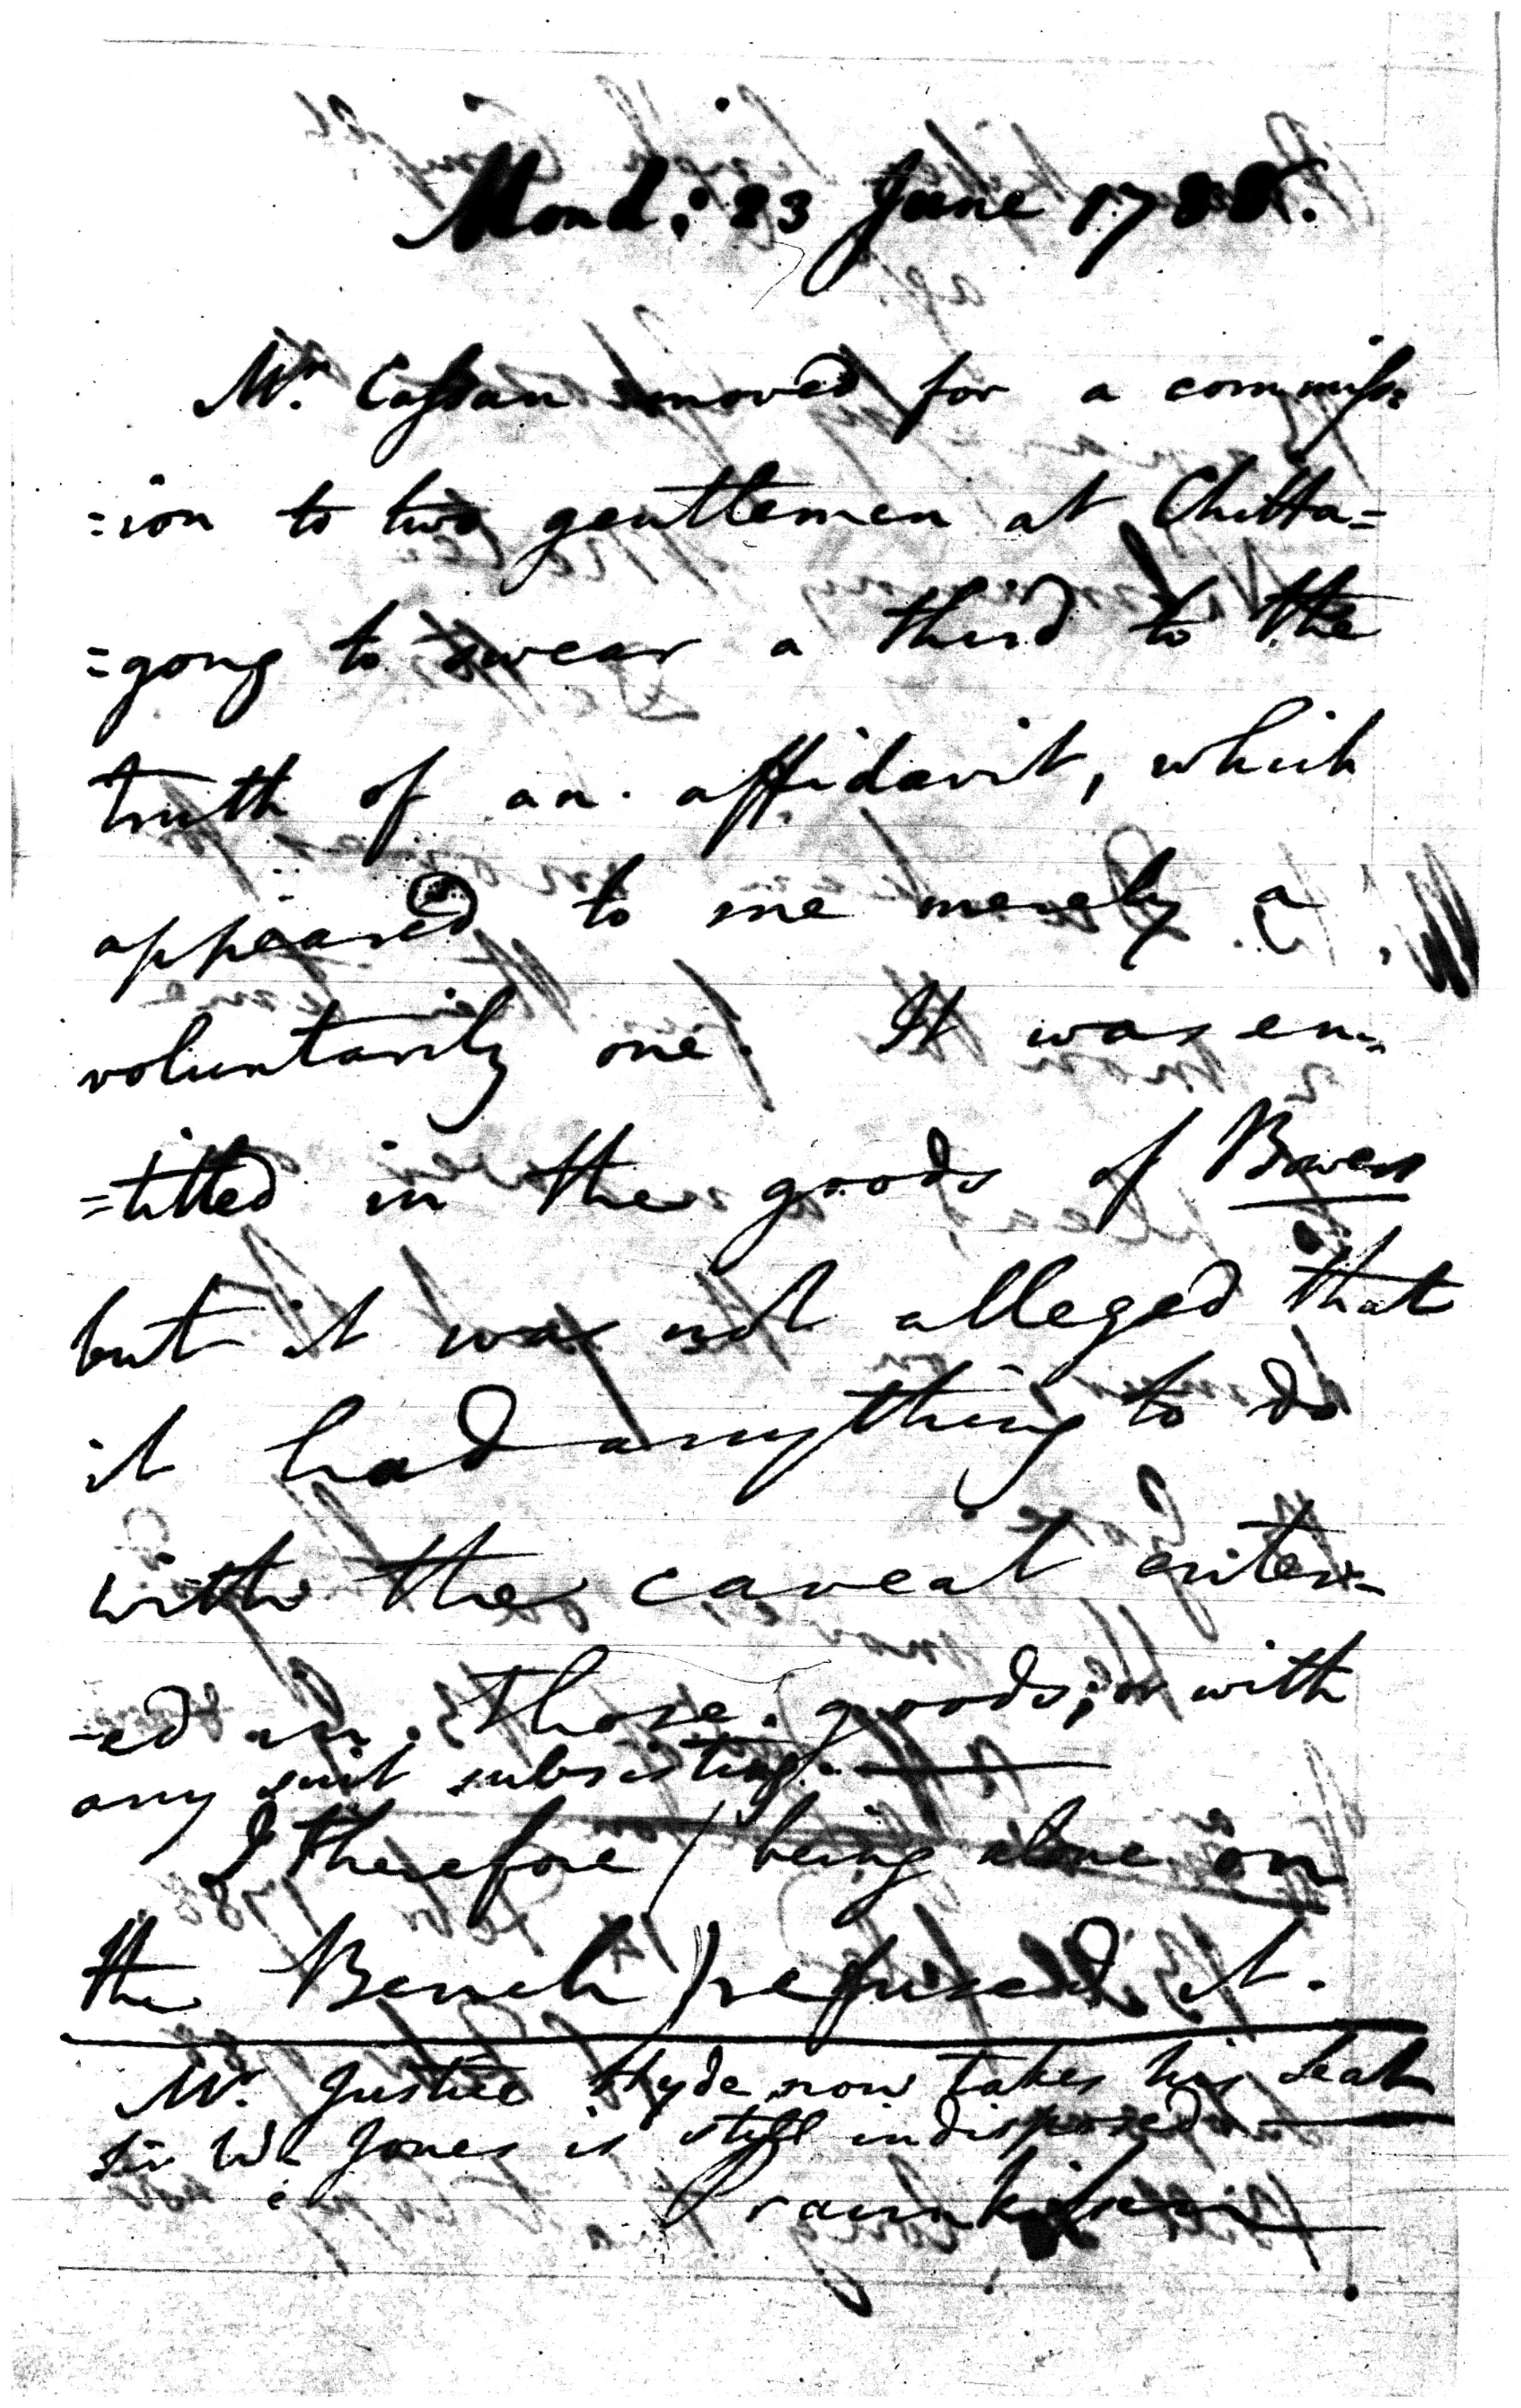 Mond: 23 June 1788.
Mr. Cassan moved for a commiss=
=ion to two gentlemen at Chitta=
=gong to swear a third to the
truth of an affidavit, which
appeared to me merely a
voluntarily one. It was en=
=titled in the goods of Bowers
but it was not alleged that
it had anything to do
with the caveat enter=
-ed in those goods, or with
any suit subsisting.
I therefore (being alone on
the Bench) refused it.
Mr. Justice Hyde now takes his seat
Sir Wm Jones is still indisposed